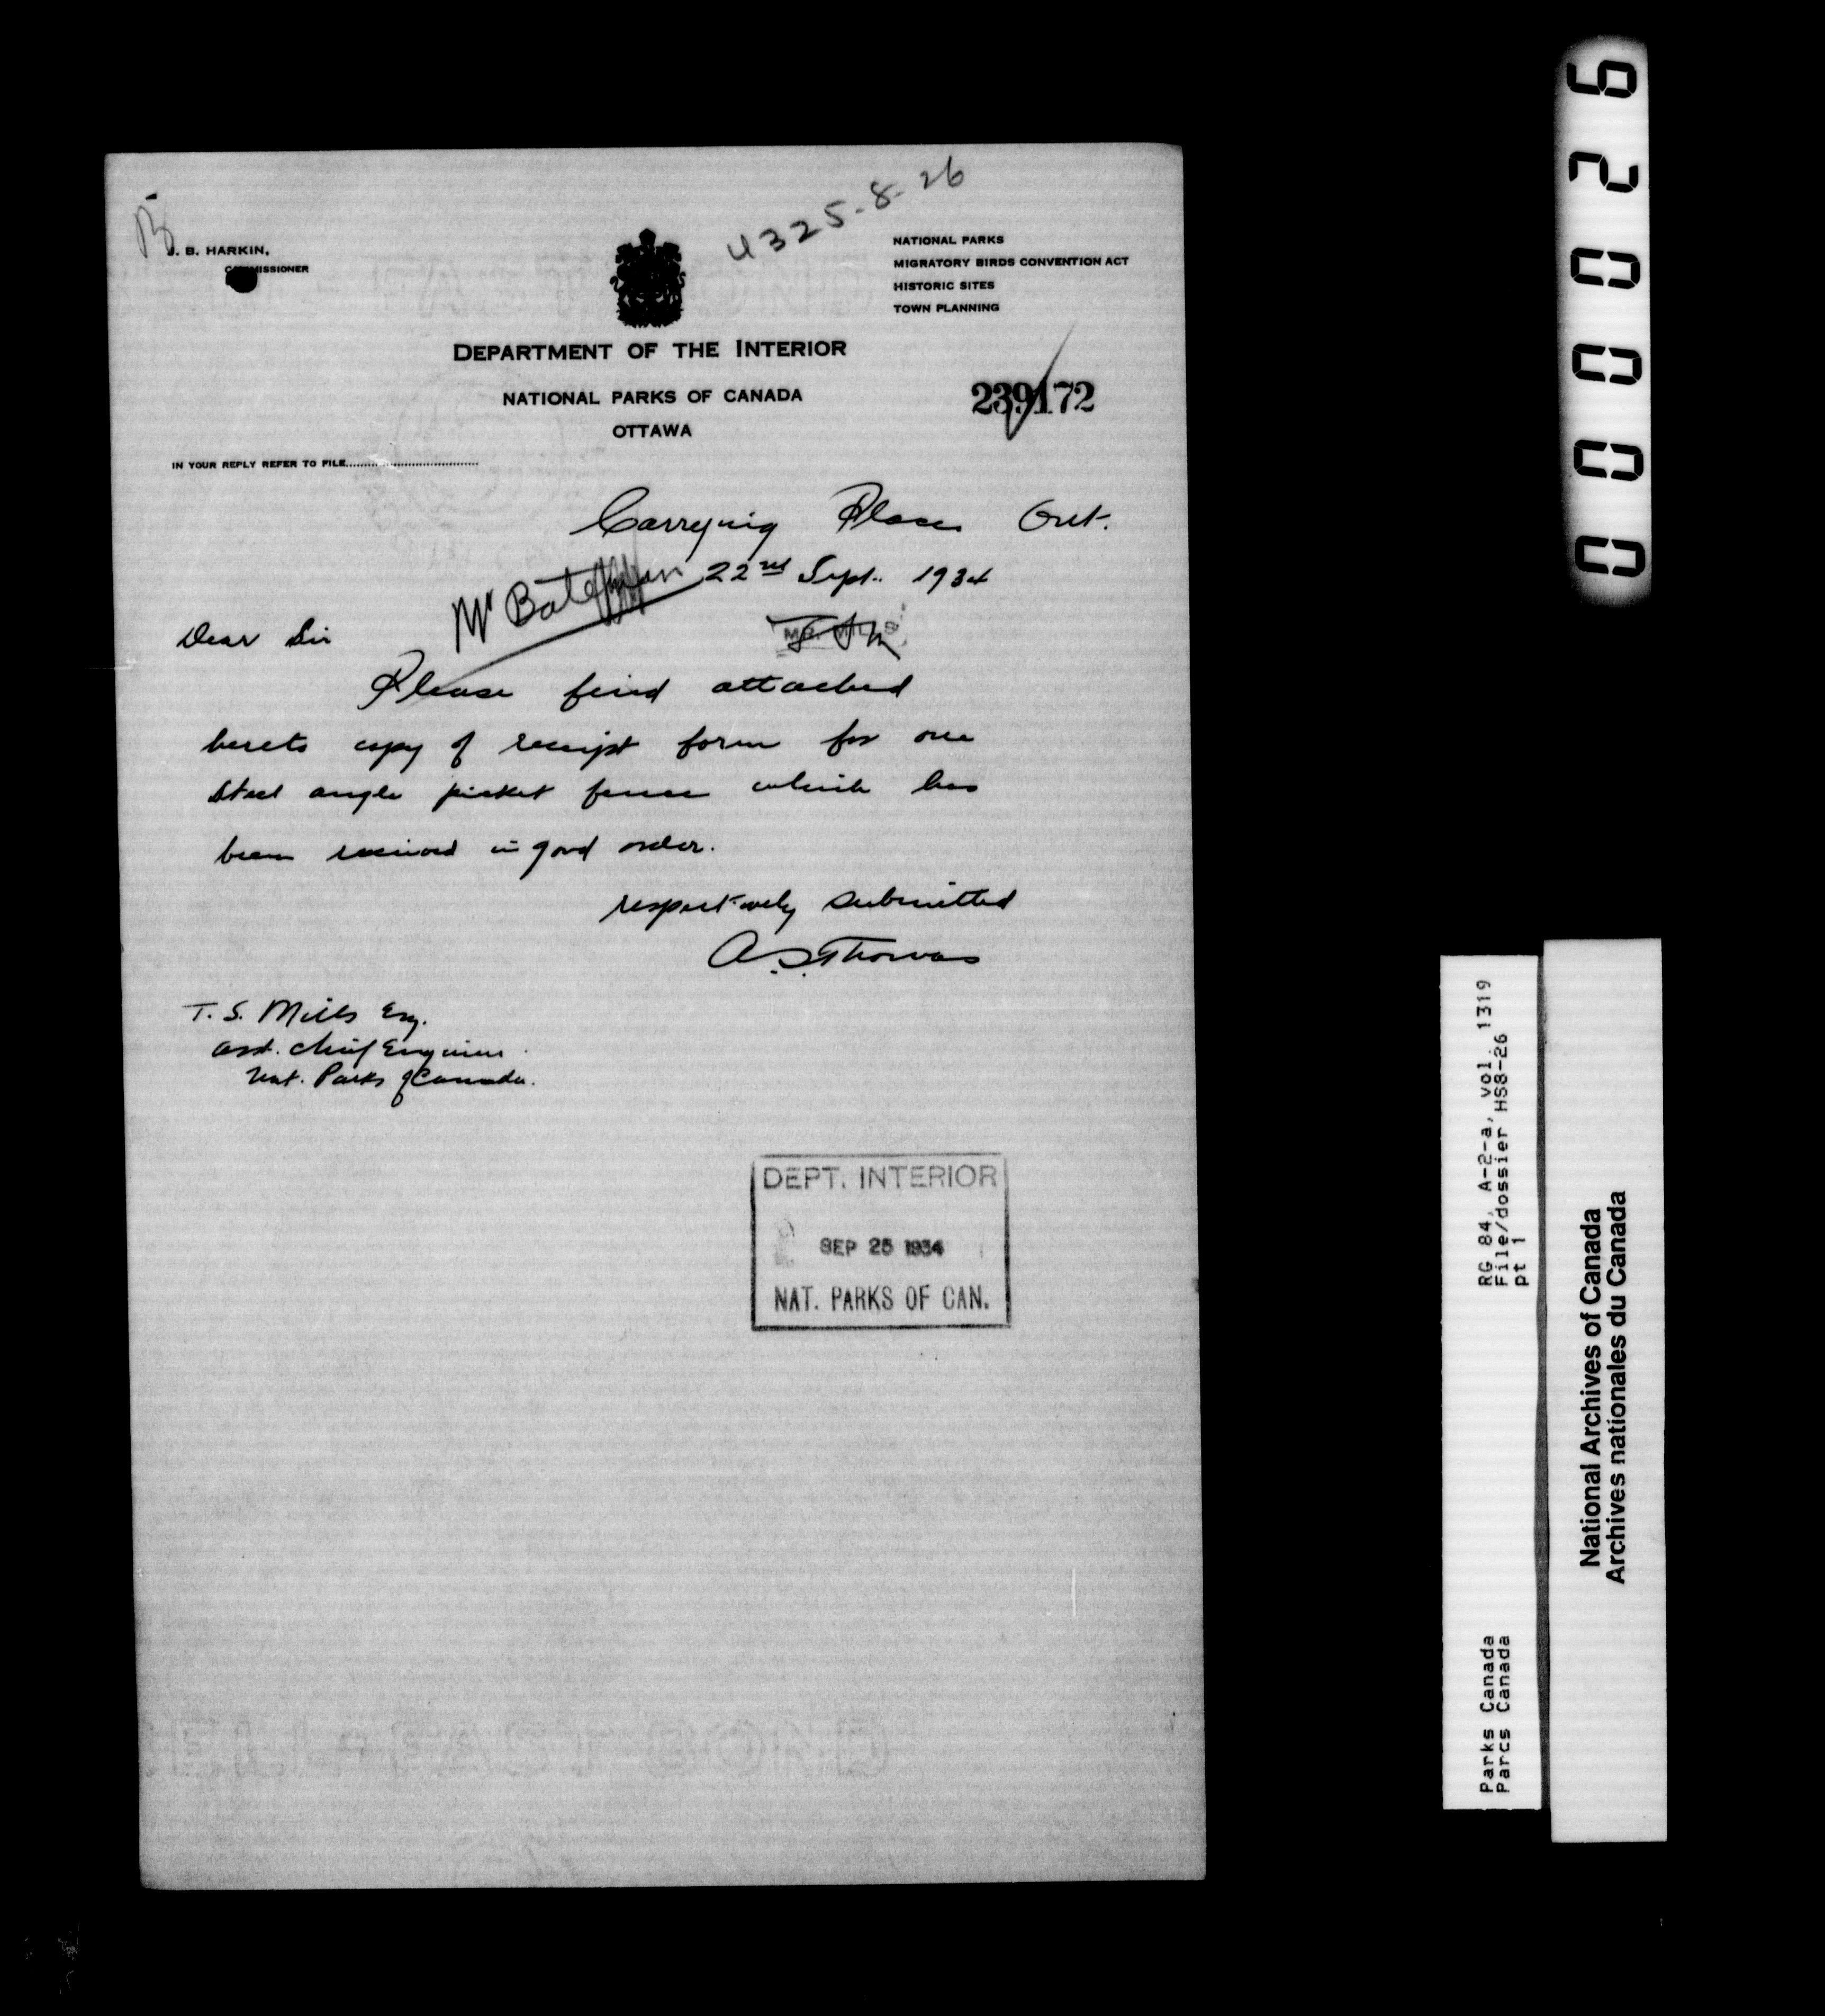 4325-8-26
J. B. HARKIN,
COMMISSIONER
NATIONAL PARKS
MIGRATORY BIRDS CONVENTION ACT
HISTORIC SITES
TOWN PLANNING
DEPARTMENT OF THE INTERIOR
NATIONAL PARKS OF CANADA
OTTAWA
239172
IN YOUR REPLY REFER TO FILE
Carrying Place Ont.
22nd Sept. 1934
Mr Bateman
Dear Sir
MR. MILLS
TSM
Please find attached
hereto copy of receipt form for one
steel angle picket fence which has
been received in good order.
respectively submitted
A.S. Thomas
T. S. Mills Esq.
Asst. Chief Engineer
Nat. Parks of Canada.
DEPT. INTERIOR
SEP 25 1934
NAT. PARKS OF CAN.
000026
RG 84, A-2-a, vol. 1319
File/dossier HS8-26
pt 1
Parks Canada
Parcs Canada
National Archives of Canada
Archives nationales du Canada